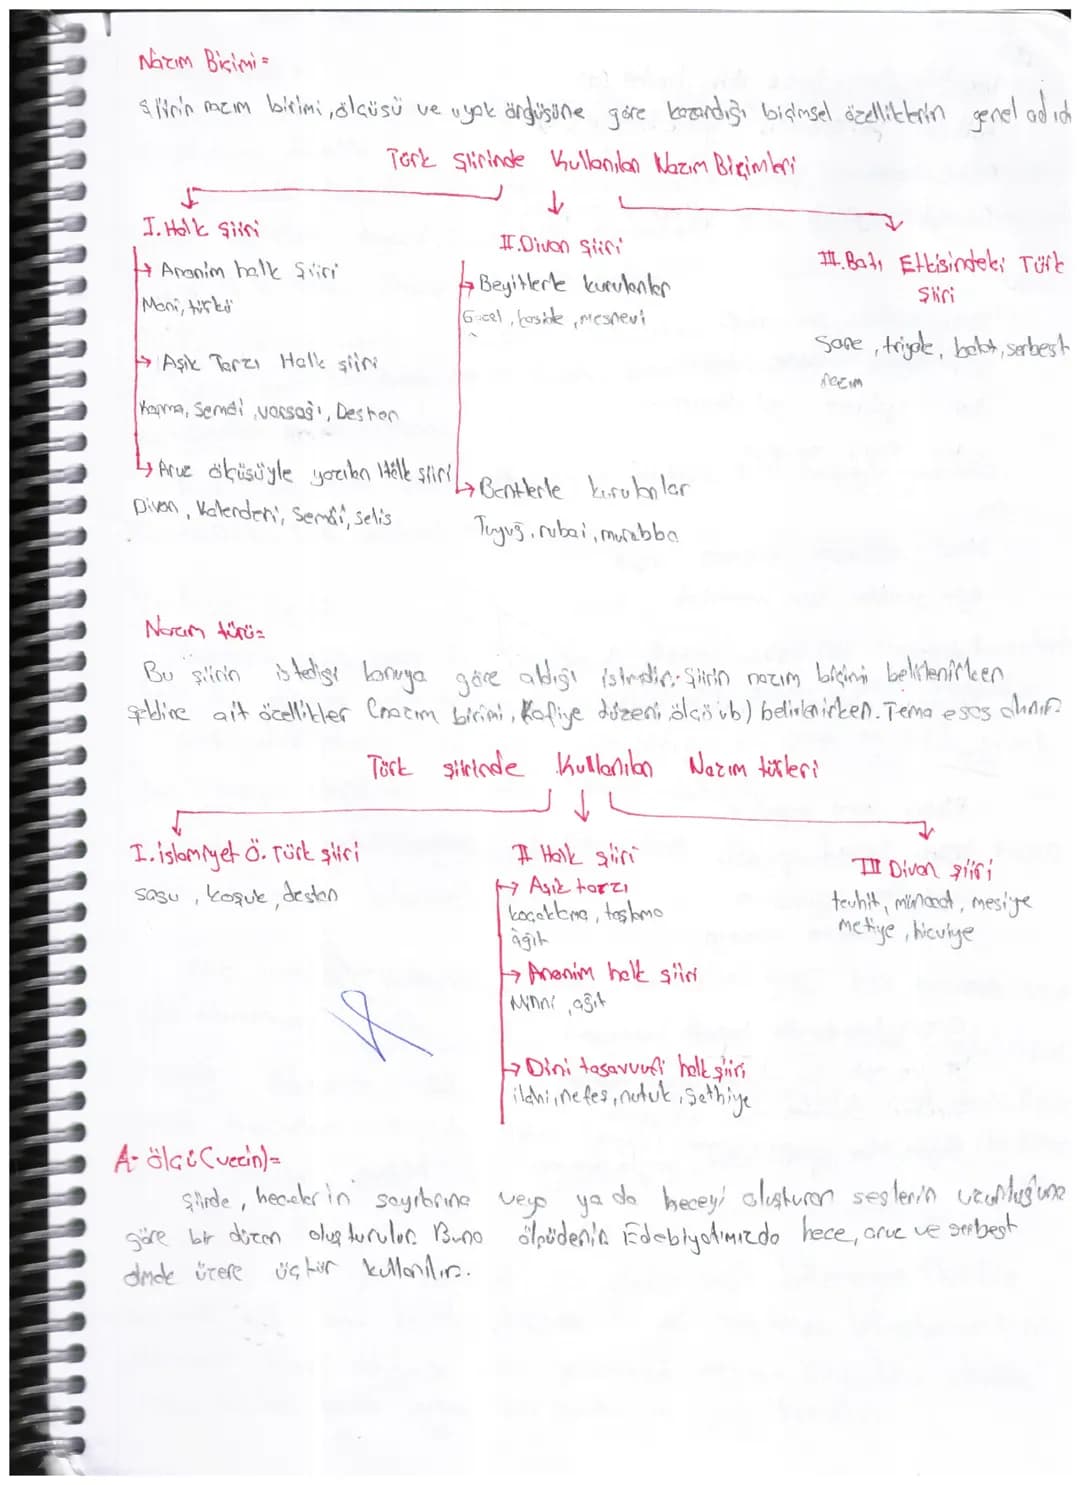 Nazım Biçimi =
Şiirin nazım birimi, ölçüsü ve uyak örgüsüne göre kazandığı biçimsel özelliklerin genel adıdı
Türk Şiirinde Kullanılan Nazım Biçimleri
I. Halk Şiiri
→ Anonim halk Şiiri
Mani, türkü
→ Aşık Tarzı Halk şiiri
Koşma, Semai, varsağı, Destan
→ Aruz ölçüsüyle yazılan Halk şiiri
Divan, Kalenderi, Semai, selis
II. Divan Şiiri
→ Beyitlerle kurulanlar
Gazel, kaside, mesnevi
→ Bentlerle kurulanlar
Tuyuğ, rubai, murabba
III. Batı Etkisindeki Türk
Şiiri
Sone, triyole, balat, serbest
nazım
Nazım türü=
Bu şiirin istediği konuya göre aldığı isimdir. Şiirin nazım biçimi belirlenirken
şekline ait özellikler (nazım birimi, Kafiye düzeni, ölçü vb) belirlenirken. Tema esas alınır.
Türk şiirinde Kullanılan Nazım türleri
I. islamiyet Ö. Türk şiiri
sagu, koşuk, destan
II Halk şiiri
→ Aşık tarzı
koçaklama, taşlama
ağıt
→ Anonim halk şiiri
Ninni, ağıt
→ Dini tasavvufi halk şiiri
ilahi, nefes, nutuk, Şathiye
III Divan şiiri
tevhit, münacat, mesiye
metiye, hicviye
A- ölçü (vezin)=
Şiirde, hecelerin sayılarına veya ya da heceyi oluşturan seslerin uzunluğuna
göre bir düzen oluşturulur. Buna ölçüdenir. Edebiyatımızda hece, aruz ve serbest
olmak üzere üç tür kullanılır.